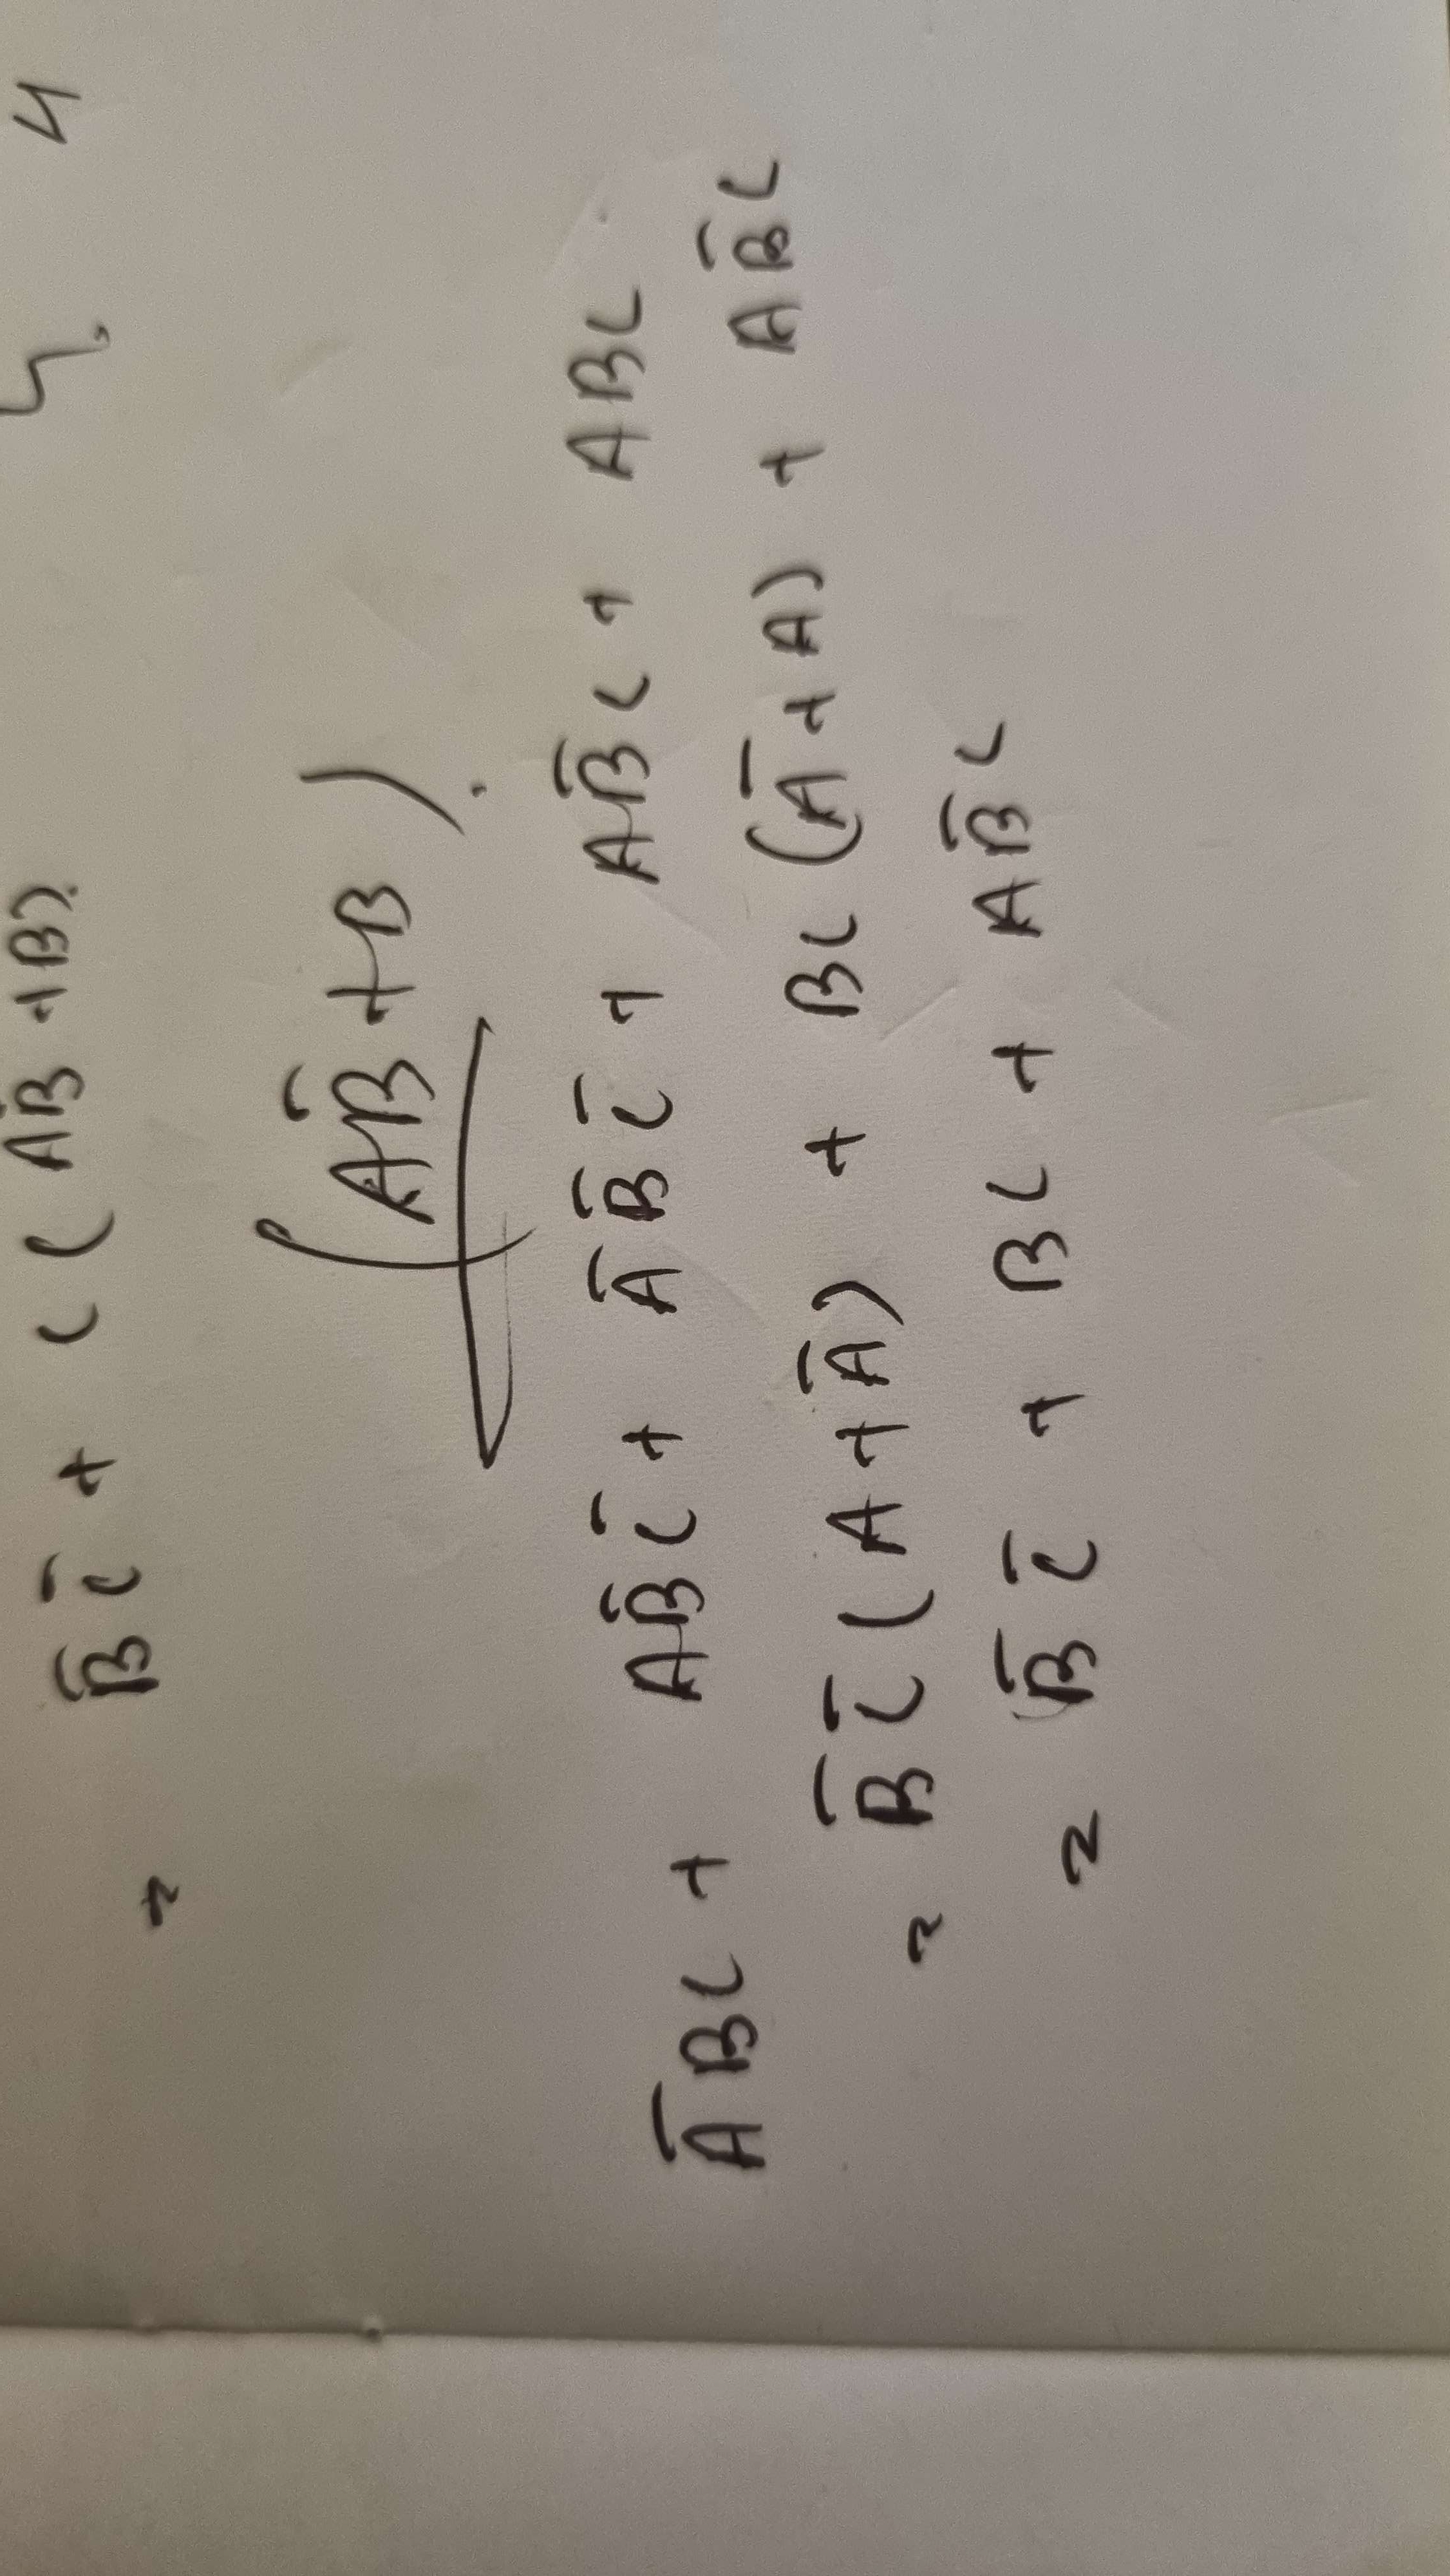 = B̅ C̅ + C ( AB̅ + B ).
4
( AB̅ + B ).
A̅BC + AB̅C̅ + A̅ B̅ C̅ + AB̅C + ABC
= B̅ C̅ ( A + A̅ ) + BC ( A̅ + A ) + AB̅C
= B̅ C̅ + BC + AB̅C